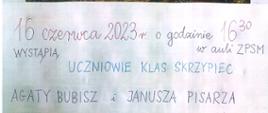 16 czerwca 2023 r o godzinie 16³⁰
WYSTĄPIĄ w auli ZPSM
UCZNIOWIE KLAS SKRZYPIEC
AGATY BUBISZ i JANUSZA PISARZA